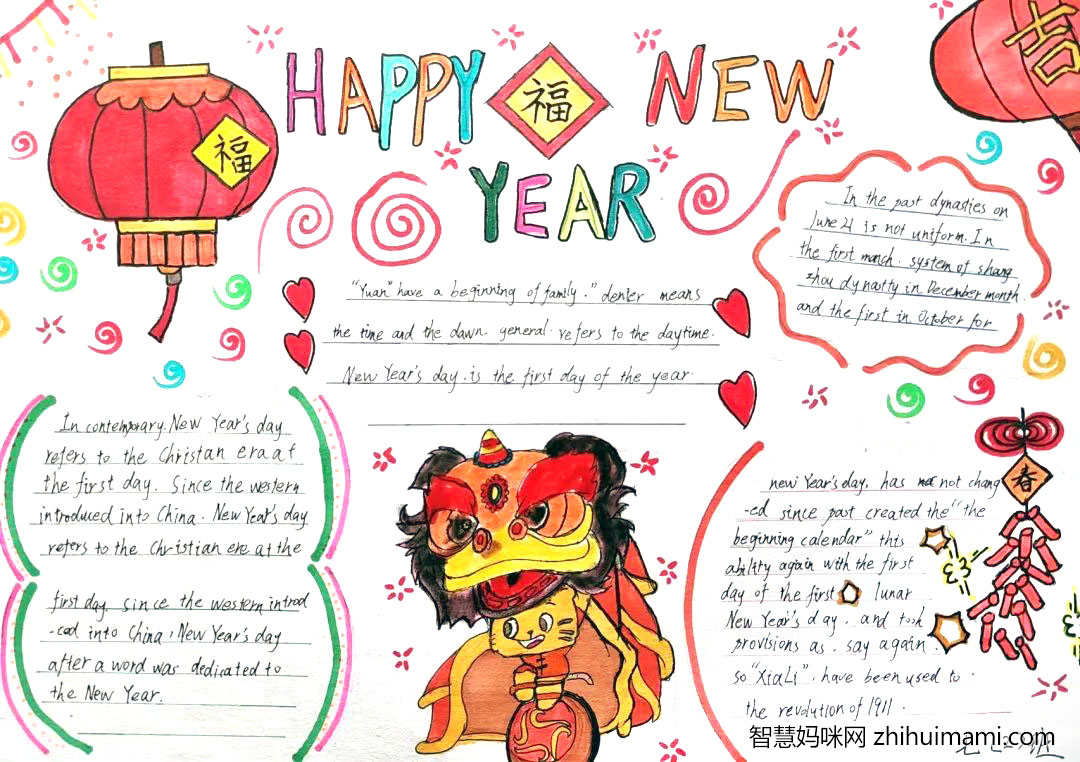 HAPPY 福 NEW
YEAR
福
吉
"Yuan" have a beginning of family." denier means
the time and the dawn general. refers to the daytime.
New Year's day. is the first day of the year.
In the past dynasties on
June 21 is not uniform. In
the first march. system of shang
zhou dynastty in December month.
and the first in October for
In contemporary. New Year's day
refers to the Christan era at
the first day. Since the western
introduced into China. New Year's day
refers to the Christian ere at the
first day. since the western introd
-ced into China, New Year's day
after a word was dedicated to
the New Year.
春
new Year's day, has not chang
-ed since past created the "the
beginning calendar" this
ability again with the first
day of the first lunar
New Year's day. and took
provisions as. say again.
so "XiaLi". have been used to.
the revolution of 1911.
智慧妈咪网 zhihuimami.com